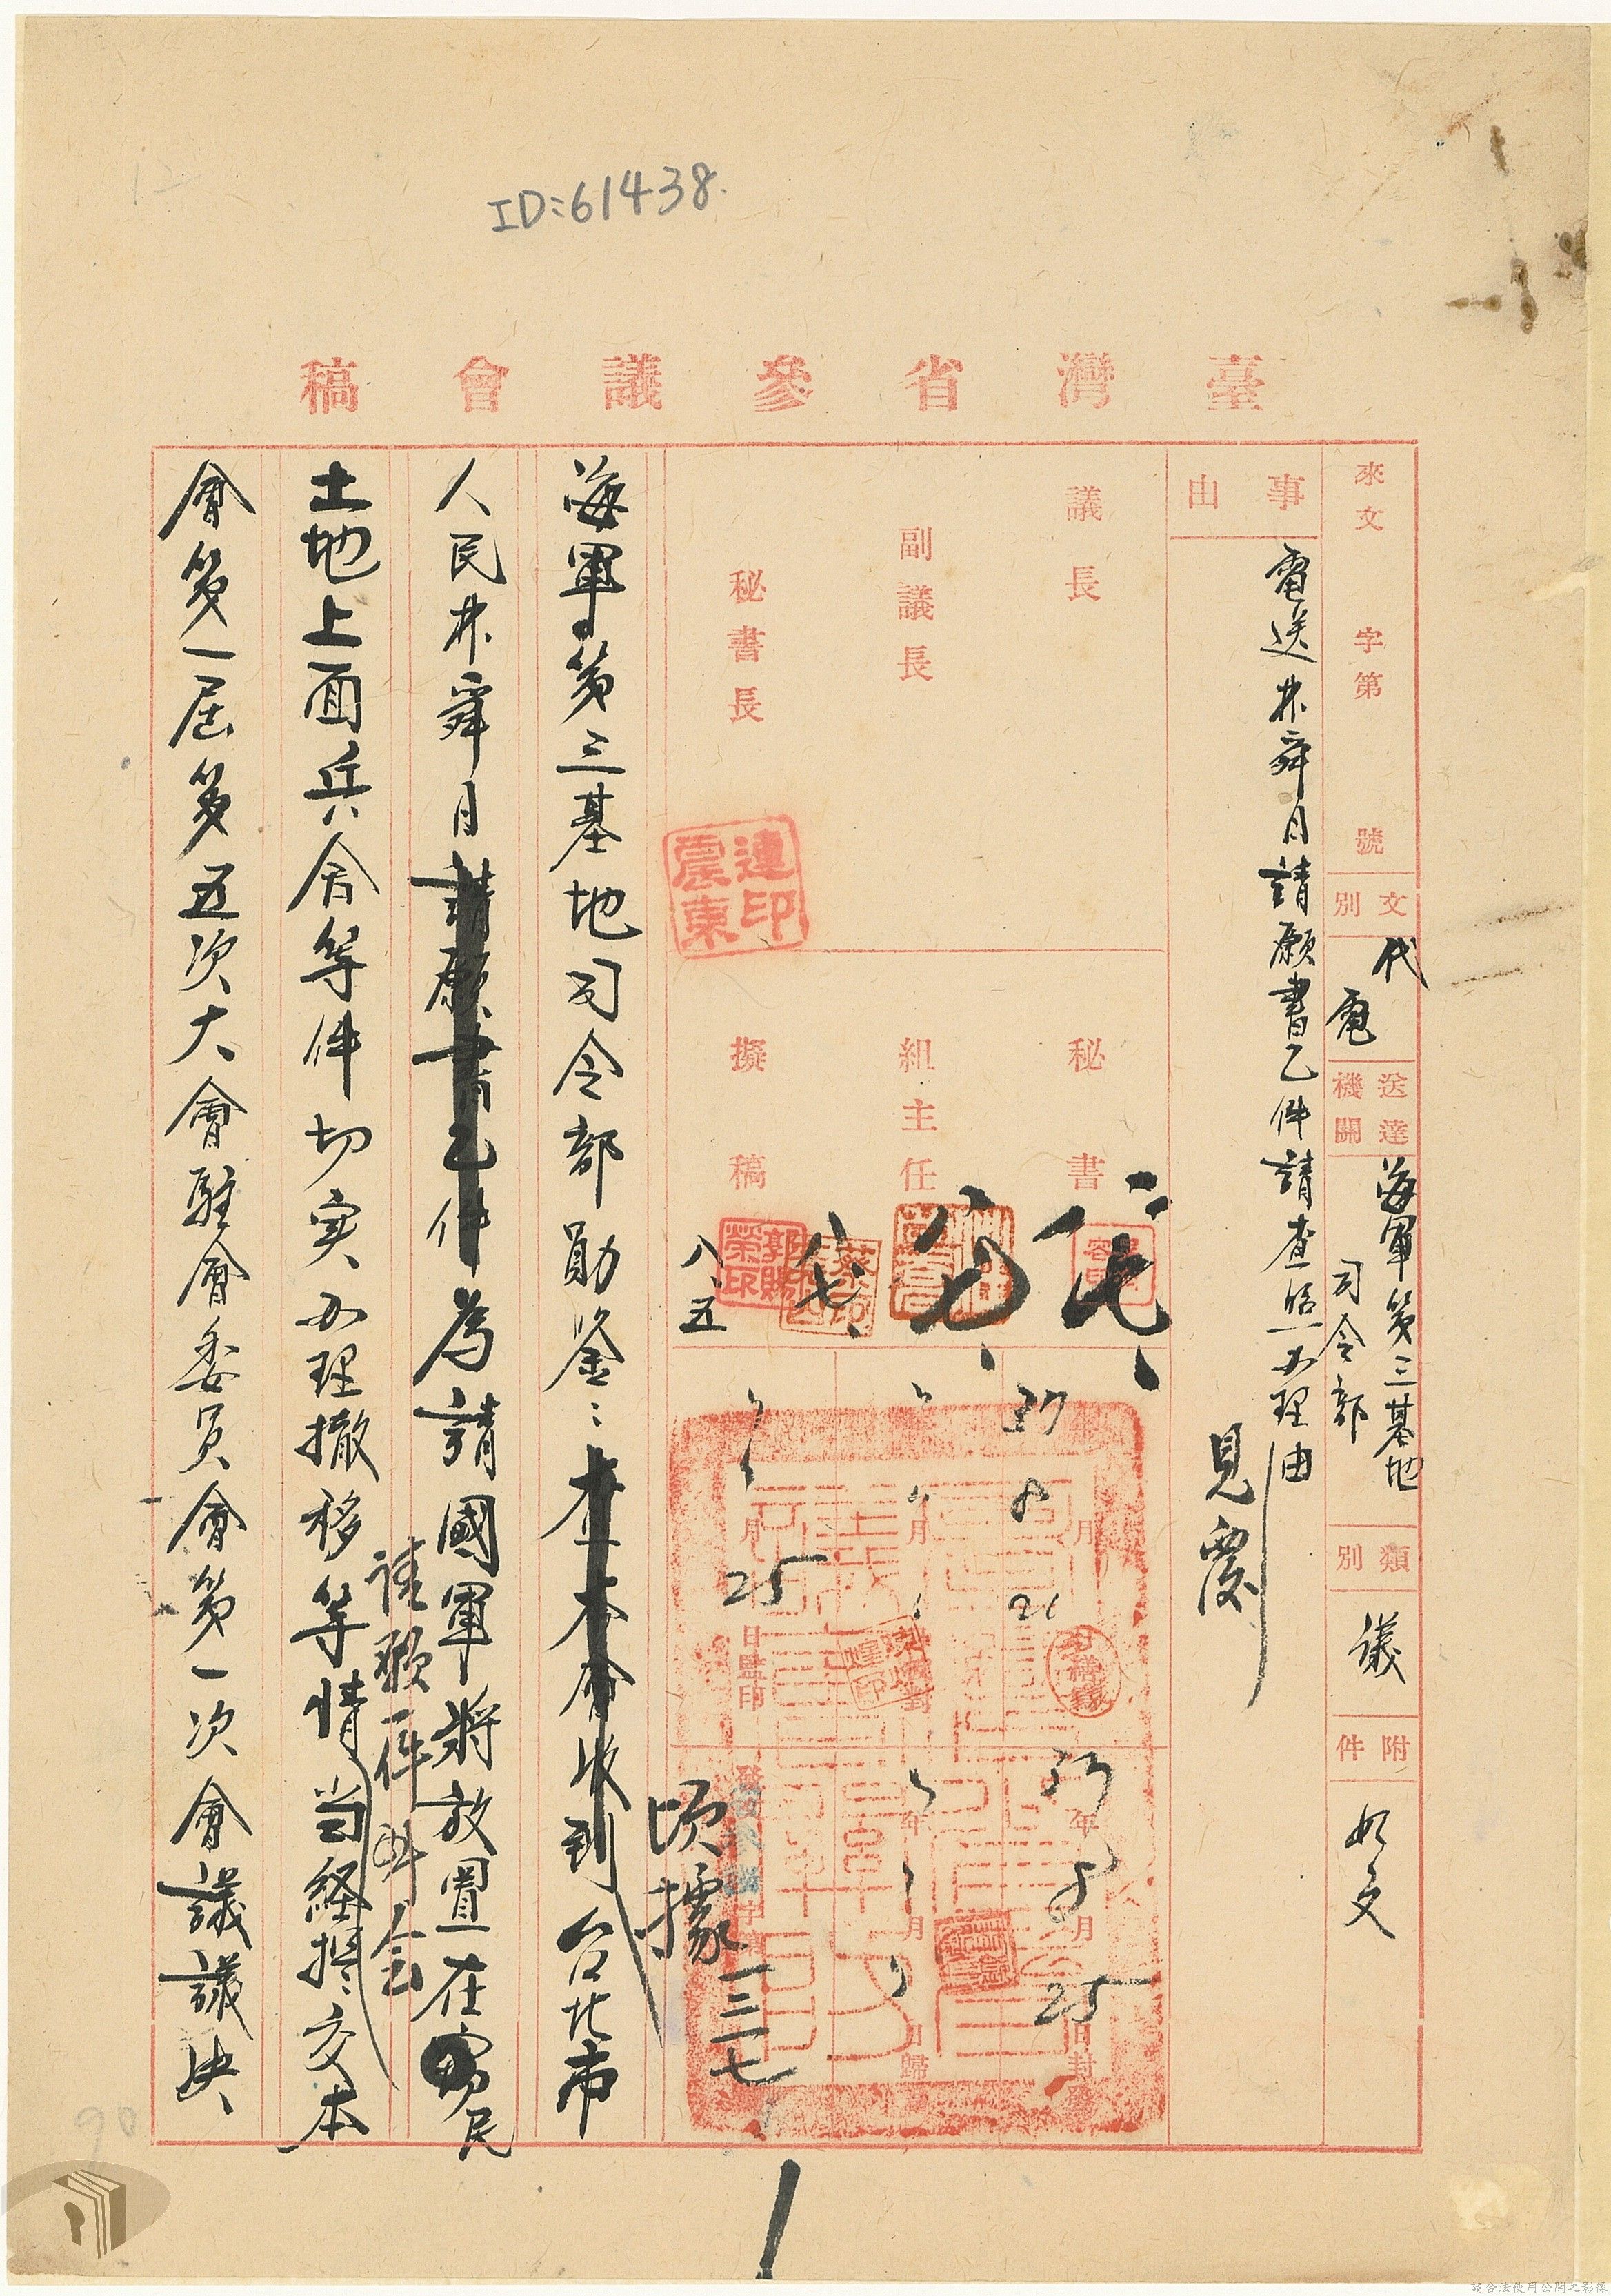 ID:61438.
臺灣省參議會稿
來文 字第 號
文別 代電
送達機關 海軍第三基地司令部
類別 議
附件 如文
事由
電送林舜月請願書乙件請查照办理由
見覆
議長
副議長
秘書長
連震東印
秘書
組主任
擬稿
郭賜榮印
八、五
37 8 21
月 日繕寫
月 校對
月 25 日監印
37年8月25日封發
年 月 日歸
字第
頃據
一三一七
海軍第三基地司令部勛鉴:查本會收到台北市
人民林舜月請願書乙件為請國軍將放置在窮民
請願一件到会
土地上面兵舍等件切实办理撤移等情当経提交本
會第一屆第五次大會駐會委員會第一次會議議決
請合法使用公開之影像